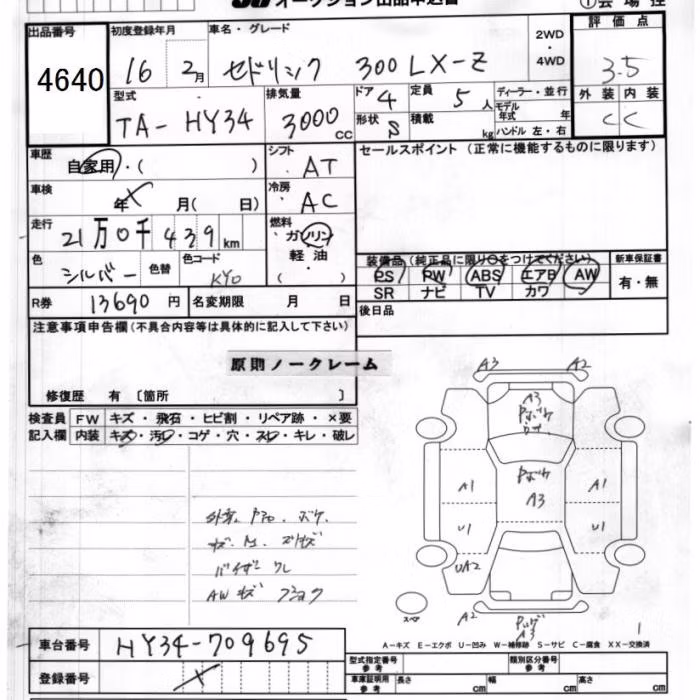 オークション出品申込書
①会場控
出品番号 初度登録年月 車名・グレード 2WD・4WD 評価点
4640 16 2月 セドリック 300LX-Z 3.5
型式 排気量 ドア 4 定員 5人 ディーラー・並行 外装 内装
TA-HY34 3000cc 形状 S 積載 kg モデル年式 年 C C
ハンドル 左・右
車歴 自家用・( ) シフト AT セールスポイント (正常に機能するものに限ります)
車検 年 月( 日) 冷房 AC
走行 21万0千439km 燃料 ガソリン・軽油・( )
色 シルバー 色替 色コード KY0
装備品(純正品に限り○をつけてください) 新車保証書
PS PW ABS エアB AW 有・無
SR ナビ TV カワ
R券 13690円 名変期限 月 日 後日品
注意事項申告欄(不具合内容等は具体的に記入して下さい)
原則ノークレーム
修復歴 有 〔箇所 〕
検査員記入欄 FW キズ・飛石・ヒビ割・リペア跡・×要
内装 キズ・汚レ・コゲ・穴・スレ・キレ・破レ
A3 A2
A3
A3
A1 A1
U1 U1
UA2
A2
A3
AWキズ
スペア
A−キズ E−エクボ U−凹み W−補修跡 S−サビ C−腐食 XX−交換済
車台番号 HY34-709695
登録番号
型式指定番号参考 類別区分番号参考
車庫証明用参考 長さ cm 幅 cm 高さ cm